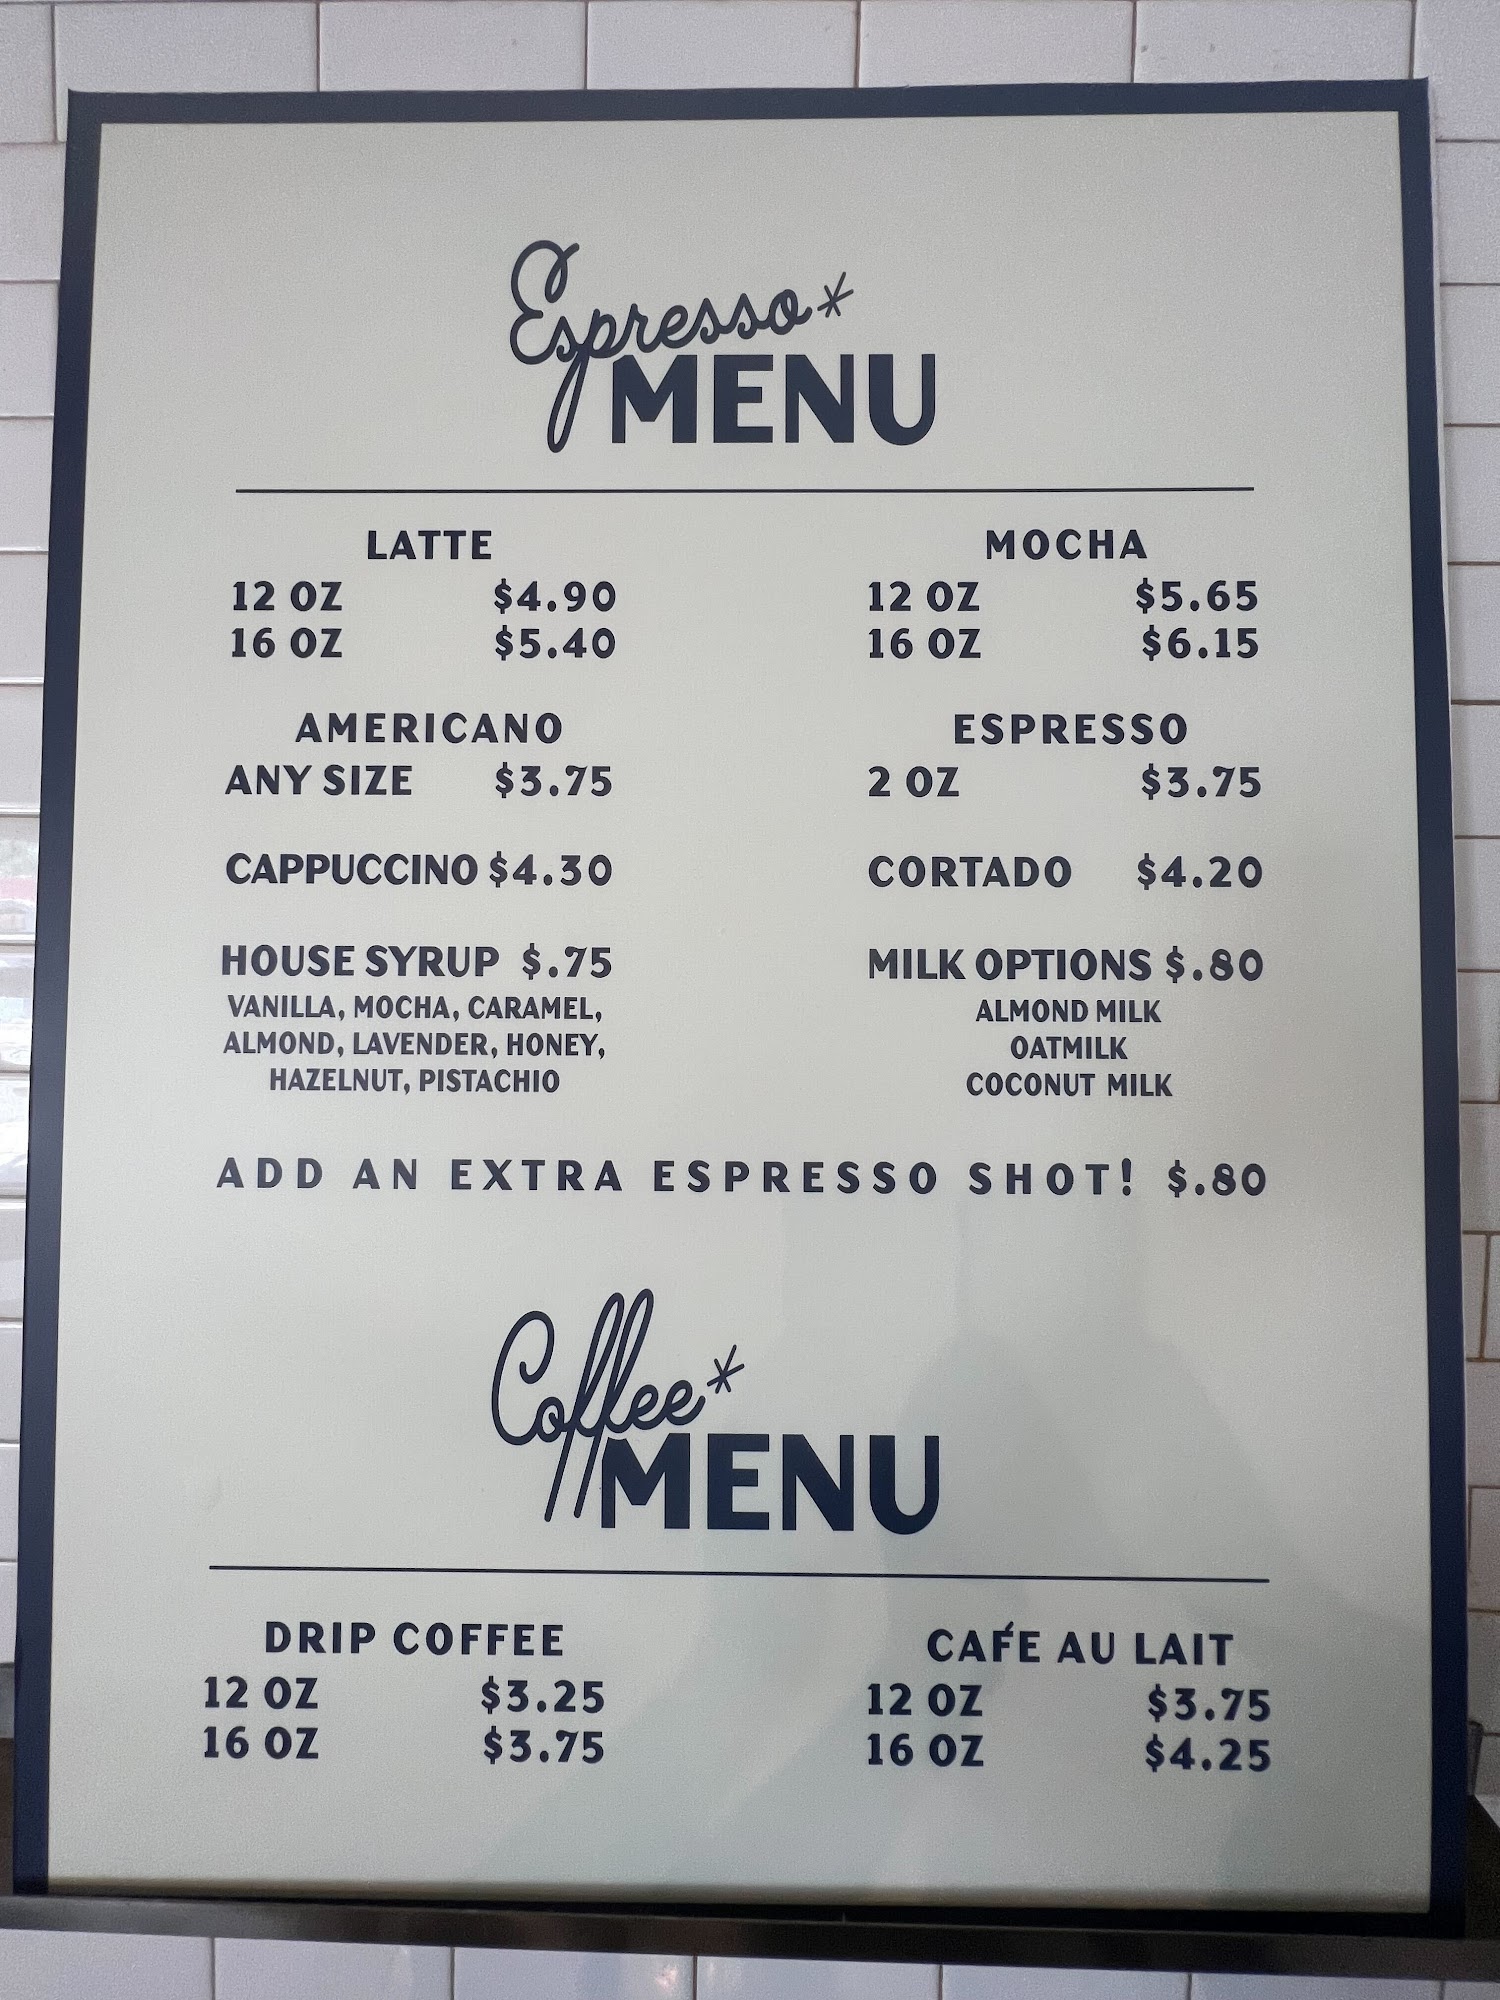 Espresso*
MENU
LATTE
12 OZ $4.90
16 OZ $5.40
MOCHA
12 OZ $5.65
16 OZ $6.15
AMERICANO
ANY SIZE $3.75
ESPRESSO
2 OZ $3.75
CAPPUCCINO $4.30
CORTADO $4.20
HOUSE SYRUP $.75
VANILLA, MOCHA, CARAMEL,
ALMOND, LAVENDER, HONEY,
HAZELNUT, PISTACHIO
MILK OPTIONS $.80
ALMOND MILK
OATMILK
COCONUT MILK
ADD AN EXTRA ESPRESSO SHOT! $.80
Coffee*
MENU
DRIP COFFEE
12 OZ $3.25
16 OZ $3.75
CAFÉ AU LAIT
12 OZ $3.75
16 OZ $4.25